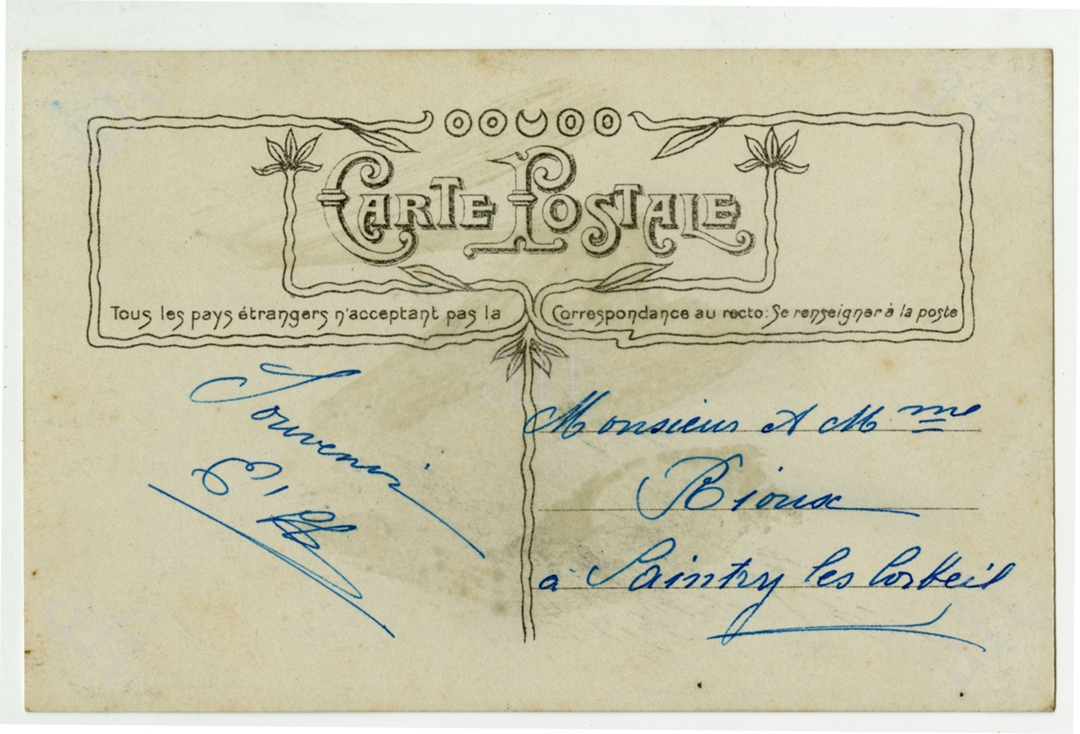 CARTE POSTALE
Tous les pays étrangers n'acceptant pas la Correspondance au recto: Se renseigner à la poste
Souvenir
Monsieur & Mme
Rioux
à Saintry les Corbeil